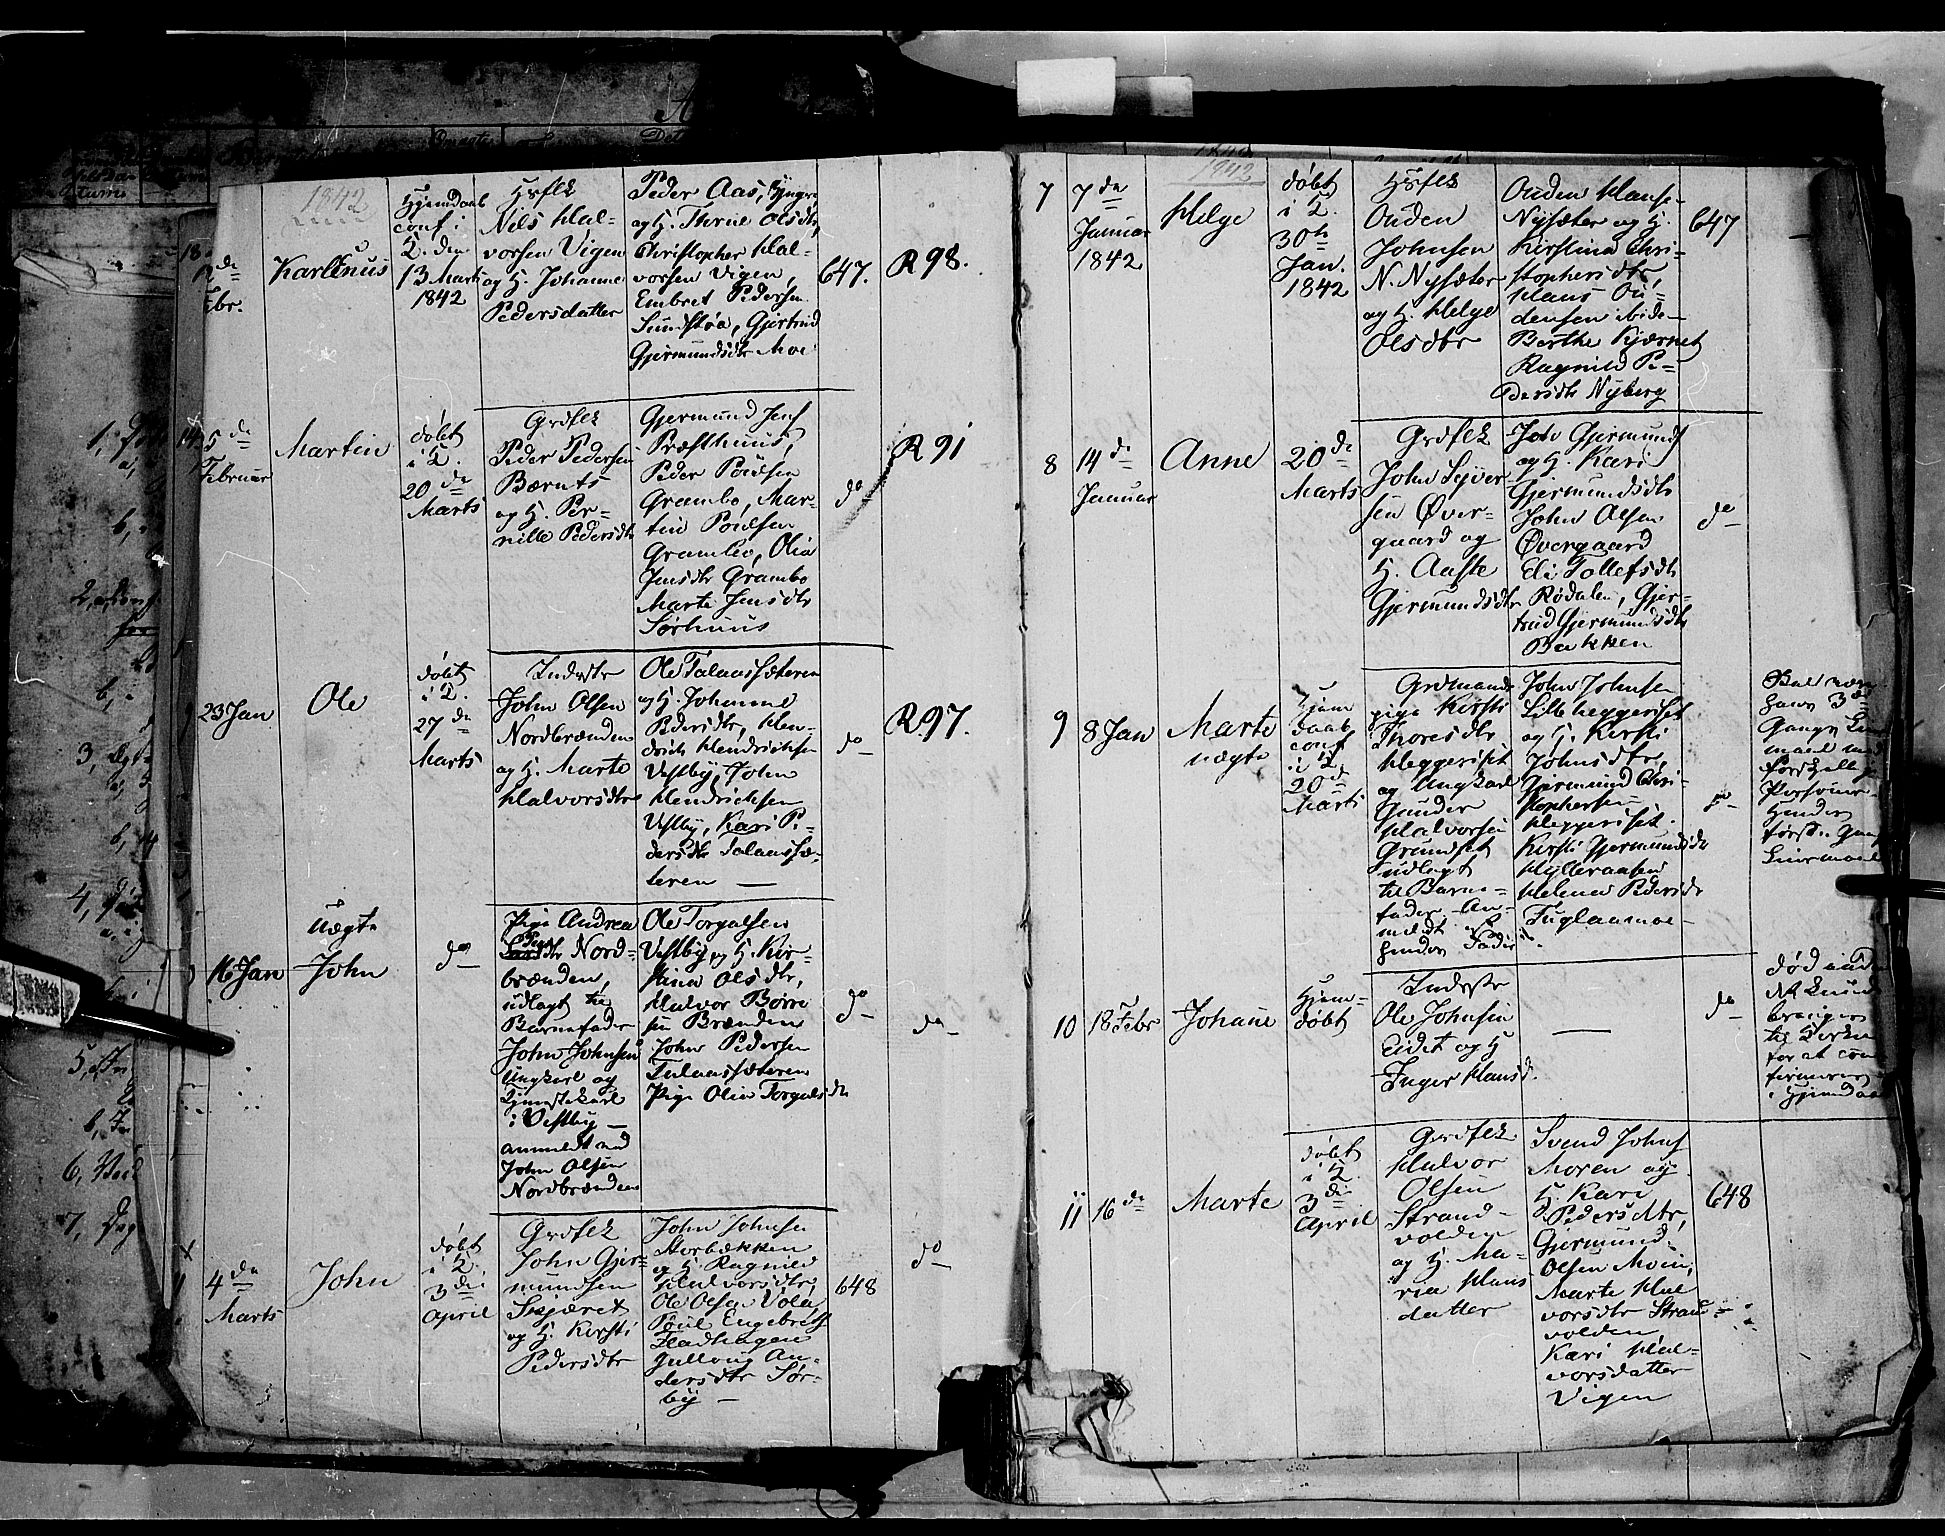 1842
18
12 de
Febr.
Karlinus
Hjemdaab
conf. i
K. den
13 Marts
1842
Hsflk
Niels Hal-
vorsen Vigen
og H. Johanne
Pedersdatter
Peder Aas,
og H. Thrine Olsdtr,
Christopher Hal-
vorsen Vigen,
Embret Pedersen
Sundstøa, Gjertrud
Gjermundsdtr Moe
647.
R 98.
5 de
Februar
Martin
døbt
i K.
20 de
Marts
Grdflk
Peder Pedersen
Bærnts
og H. Per-
nille Pedersdtr
Gjermund Jens
Præsthuus,
Peder Poulsen
Grambo, Mar-
tin Poulsen
Grambo, Olia
Jensdtr Grambo
Marte Jensdtr
Sørhuus
do
R 91
23 Jan
Ole
døbt
i K.
27 de
Marts
Inderste
John Olsen
Nordbrænden
og H. Marte
Halvorsdtr
Ole Talaassæteren
og H. Johanne
Pedersdtr, Hen-
drich Hendrichsen
Vestby, John
Hendrichsen
Vestby, Kari Pe-
dersdtr Talaassæ-
teren —
do
R. 97.
16 Jan
Uægte
John
do
Pige Andrea
Nord-
brænden,
udlagt til
Barnefader
John Johnsen
Ungkarl og
Tjenestekarl
i Vestby —
anmeldt ved
John Olsen
Nordbrænden
Ole Torgalsen
Vestby og H. Kir-
stina Olsdtr,
Halvor Børre
sen Brænden
John Pedersen
Talaassæteren
Pige Olia Torgalsdtr
do
do
4 de
Marts
John
døbt
i K.
3 die
April
Grdflk
John Gjer-
mundsen
Skjæret
og H. Kirsti
Pedersdtr
John Johnsen
Storbækken
og H. Ragnild
Halvorsdtr,
Ole Olsen Vola,
Poul Engebrets
Fladhagen
Gullaug An-
dersdtr Sør-
by —
648
do
7
7 de
Januar
1842
Helge
døbt
i K.
30te
Jan.
1842
Hsflk
Ouden
Johnsen
N. Nysæter
og H. Helge
Olsdtr
Ouden Hanse-
Nysæter og H.
Kirstina Chri-
stophersdtr,
Hans Ou-
densen ibide-
Berthe Kjærnet
Ragnild Pe-
dersdtr Nyberg
647
8
14 de
Januar
Anne
20 de
Marts
Grdflk
John Syver
sen Øver-
gaard og
H. Aaste
Gjermundsdtr
John Gjermunds
og H. Kari
Gjermundsdtr
John Olsen
Øvergaard
Eli Tollefsdtr
Rødalen, Gjer-
trud Gjermundsdtr
Bakken
do
9
8 Jan
Marte
uægte
Hjem
daab
conf
i K
20 de
Marts
Grdmands
pige Kirsti
Thoresdtr
Heggeriset
og Ungkarl
Gunder
Halvorsen
Grundset
udlagt
til Barne-
fader An-
meldt af
hendes Fader
John Johnsen
Lilleheggeriset
og H. Kirsti
Johnsdtr,
Gjermund Chri-
stophersen
Heggeriset.
Kirsti Gjermundsdtr
Hylleraasen
Helena Pedersdtr
Fuglaamoe-
do
hans 3 de
Gangs Leier
maal med
forskellige
Personer
Hendes
første Gangs
Leiermaal
10
18 Febr
Johane
Hjem-
døbt
Inderste
Ole Johnsen
Eidet og H
Inger Hansd.
—
do
død inden
det kunde
bringes
til Kirken
for at con
firmeres
i Hjemdaab
11
16 de
Marte
døbt
i K
3 die
April
Grdflk
Halvor
Olsen
Strand-
volden
og H. Ma-
rea Hans
datter
Svend Johns
Moren og
H. Kari
Pedersdtr,
Gjermund
Olsen Moen,
Marte Hal
vorsdtr Stran-
volden
Kari Hal-
vorsdatter
Vigen
648